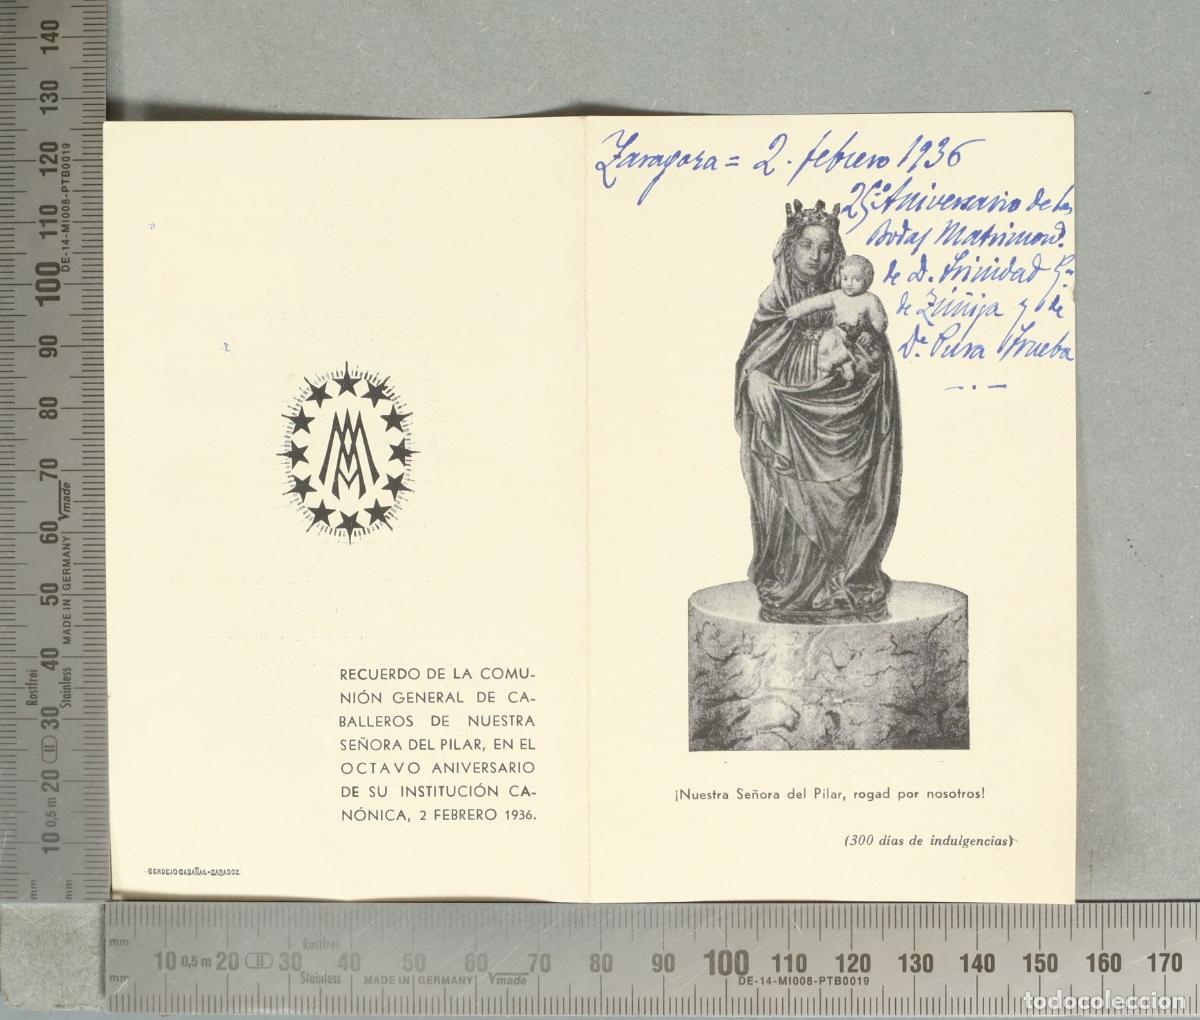 Zaragoza = 2. febrero 1936
25º Aniversario de las
Bodas Matrimond.
de D. Trinidad Gª
de Zúñiga y de
Dª Pura Trueba
RECUERDO DE LA COMU-
NIÓN GENERAL DE CA-
BALLEROS DE NUESTRA
SEÑORA DEL PILAR, EN EL
OCTAVO ANIVERSARIO
DE SU INSTITUCIÓN CA-
NÓNICA, 2 FEBRERO 1936.
¡Nuestra Señora del Pilar, rogad por nosotros!
(300 días de indulgencias)
140
130
120
110
100
90
80
70
60
50
40
30
20
10
DE-14-MI008-PTB0019
MADE IN GERMANY
Vmade
Rostfrei
Stainless
II
0,5 m
mm
mm
mm
mm
10 0,5 m 20 II 30 40 50 60 70 80 90 100 110 120 130 140 150 160 170
Rostfrei
Stainless
MADE IN GERMANY
Vmade
DE-14-MI008-PTB0019
todocoleccion